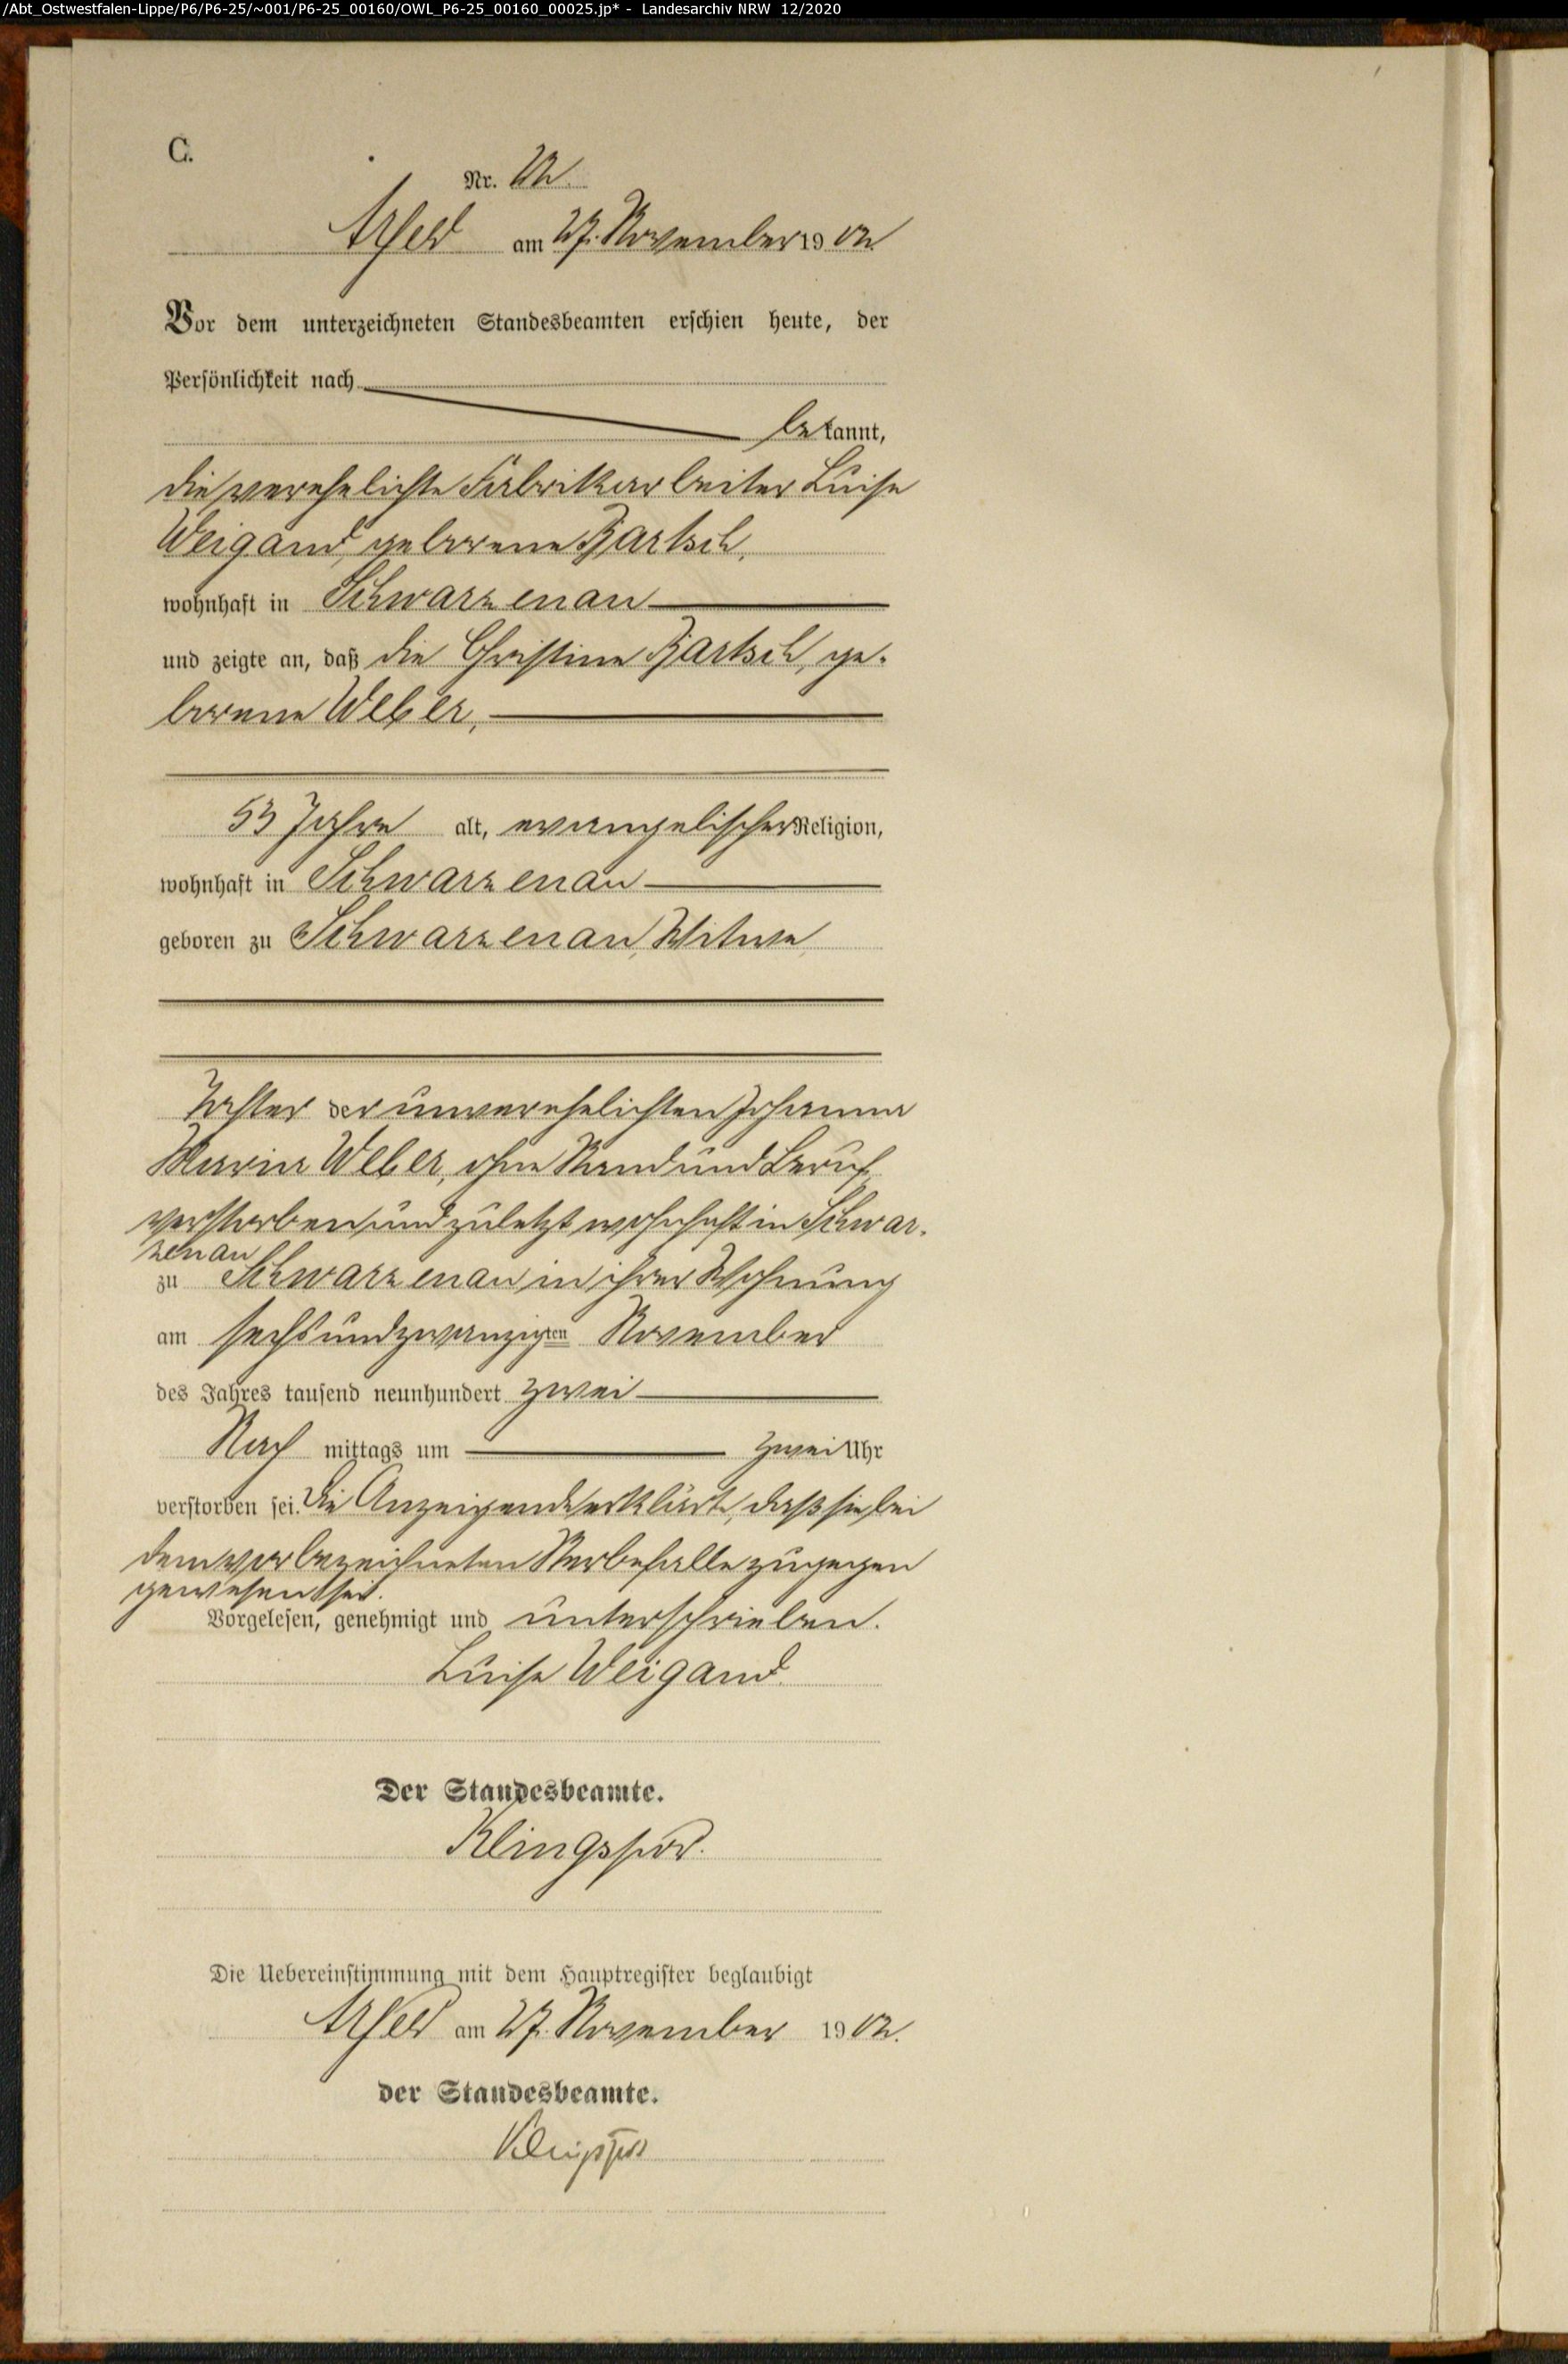 /Abt_Ostwestfalen-Lippe/P6/P6-25/~001/P6-25_00160/OWL_P6-25_00160_00025.jp* - Landesarchiv NRW 12/2020
C.
Nr. 22.
Arfeld am 27. November 1902
Vor dem unterzeichneten Standesbeamten erschien heute, der
Persönlichkeit nach
bekannt,
die verehelichte Fabrikarbeiter Luise
Weigand, geborene Bartsch,
wohnhaft in Schwarzenau
und zeigte an, daß die Christine Bartsch, ge-
borene Weber,
53 Jahre alt, evangelischer Religion,
wohnhaft in Schwarzenau
geboren zu Schwarzenau, Witwe
Tochter der unverehelichten Johanna
Maria Weber, ohne Stand und Beruf,
verstorben und zuletzt wohnhaft in Schwar-
zenau
zu Schwarzenau in ihrer Wohnung
am sechsundzwanzigten November
des Jahres tausend neunhundert zwei
Nach mittags um zwei Uhr
verstorben sei. Die Anzeigende erklärte, daß sie bei
dem vorbezeichneten Sterbefalle zugegen
gewesen sei.
Vorgelesen, genehmigt und unterschrieben.
Luise Weigand.
Der Standesbeamte.
Klingspor.
Die Uebereinstimmung mit dem Hauptregister beglaubigt
Arfeld am 27. November 1902.
der Standesbeamte.
Klingspor